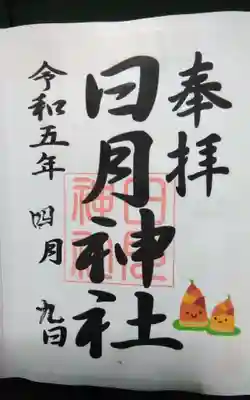 奉拝
日月神社
令和五年 四月 九日
日月神社